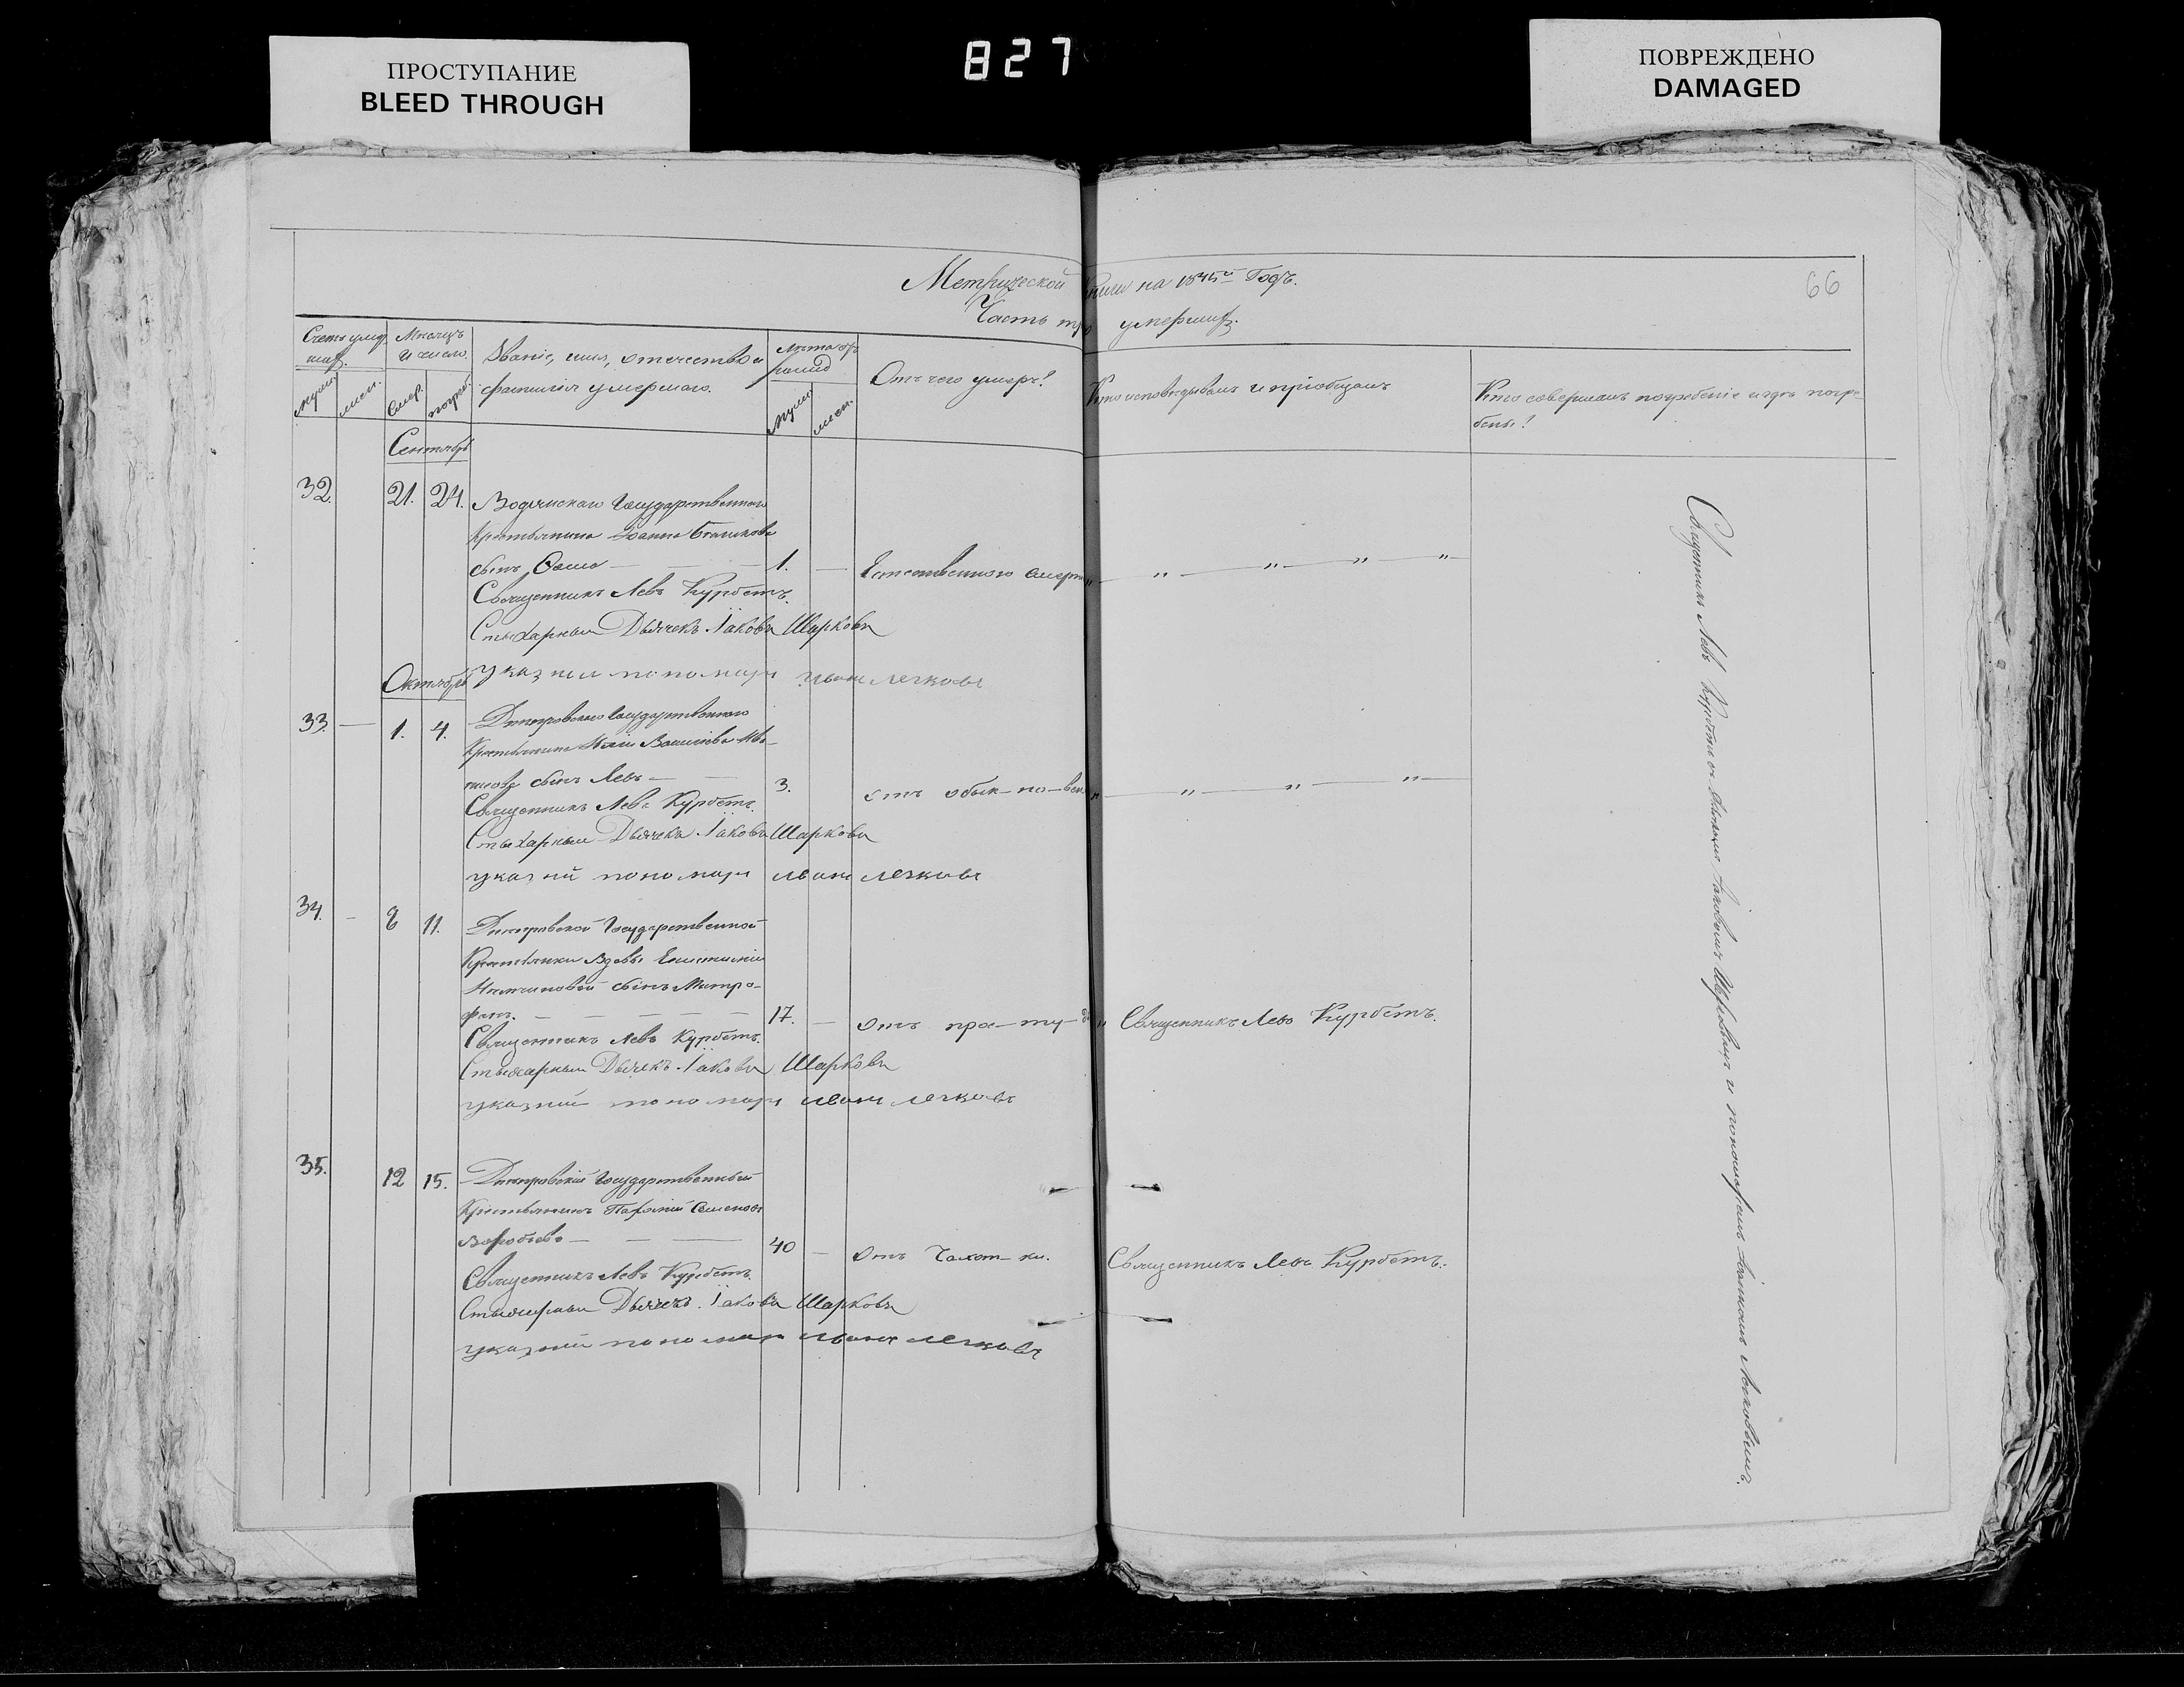 ПРОСТУПАНИЕ
BLEED THROUGH
827
ПОВРЕЖДЕНО
DAMAGED
Метрической книги на 1845й Годъ.
66
Часть тре умершихъ.
Счетъ умер
шихъ.
Мѣсяцъ
и число.
Званіе, имя, отечество и
фамилія умершаго.
Лѣта от
рожд
Отъ чего умеръ?
Кто исповѣдывалъ и пріобщалъ
Кто совершалъ погребеніе и гдѣ погре-
бены?
муж.
жен.
смер.
погреб.
муж.
жен.
Сентябрь
32. 21. 24. Водянскаго Государственнаго
Крестьянина Іоанна
сынъ, 1. — Естественною смерт
Священникъ Левъ Курбетъ.
Стыхарный Дьячекъ Іаковъ Шарковъ
Октябрь
указный пономарь Иванъ Легковъ
33. — 1. 4. Днепровскаго Государственнаго
Крестьянина Василіева
сынъ Левъ — 3. отъ обык-но-вен
Священникъ Левъ Курбетъ.
Стыхарный Дьячекъ Іаковъ Шарковъ
указный пономарь Иванъ Легковъ
34. — 8 11. Днепровской Государственной
Крестьянки Вдовы
сынъ Митро-
фанъ. — 17. — отъ про-сту-ды Священникъ Левъ Курбетъ.
Священникъ Левъ Курбетъ.
Стыхарный Дьячекъ Іаковъ Шарковъ
указный пономарь Иванъ Легковъ
35. 12 15. Днепровскій Государственный
Крестьянинъ Семеновъ
Воробьевъ — 40 — отъ Чахот-ки. Священникъ Левъ Курбетъ.
Священникъ Левъ Курбетъ.
Стыхарный Дьячекъ Іаковъ Шарковъ
указный пономарь Иванъ Легковъ
Священникъ Левъ Курбетъ съ дьячкомъ Іаковомъ Шарковымъ и пономаремъ Іоанномъ Легковымъ.